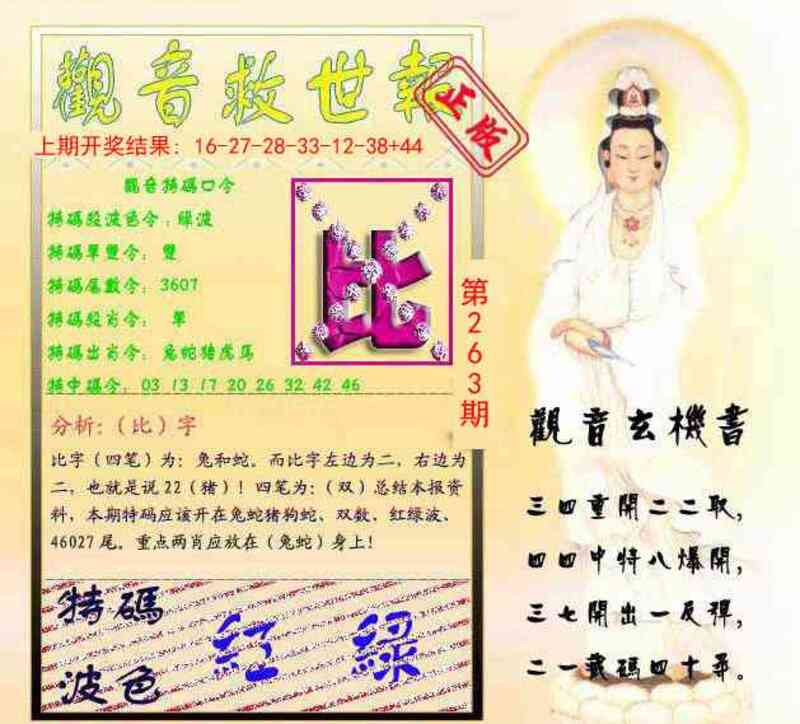 觀音救世報
正版
上期开奖结果：16-27-28-33-12-38+44
觀音特碼口令
特碼段波色令：綠波
特碼單雙令：雙
特碼尾數令：3607
特碼段肖令：單
特碼出肖令：兔蛇猪虎馬
特中碼令：03 13 17 20 26 32 42 46
比
第263期
分析:（比）字
比字（四笔）为：兔和蛇。而比字左边为二，右边为
二，也就是说22（猪）！四笔为:（双）总结本报资
料，本期特码应该开在兔蛇猪狗蛇、双数、红绿波、
46027尾。重点两肖应放在（兔蛇）身上！
特碼
波色
紅 綠
觀音玄機書
三四重開二二取，
四四中特八爆開，
三七開出一反彈，
二一藏碼四十尋。